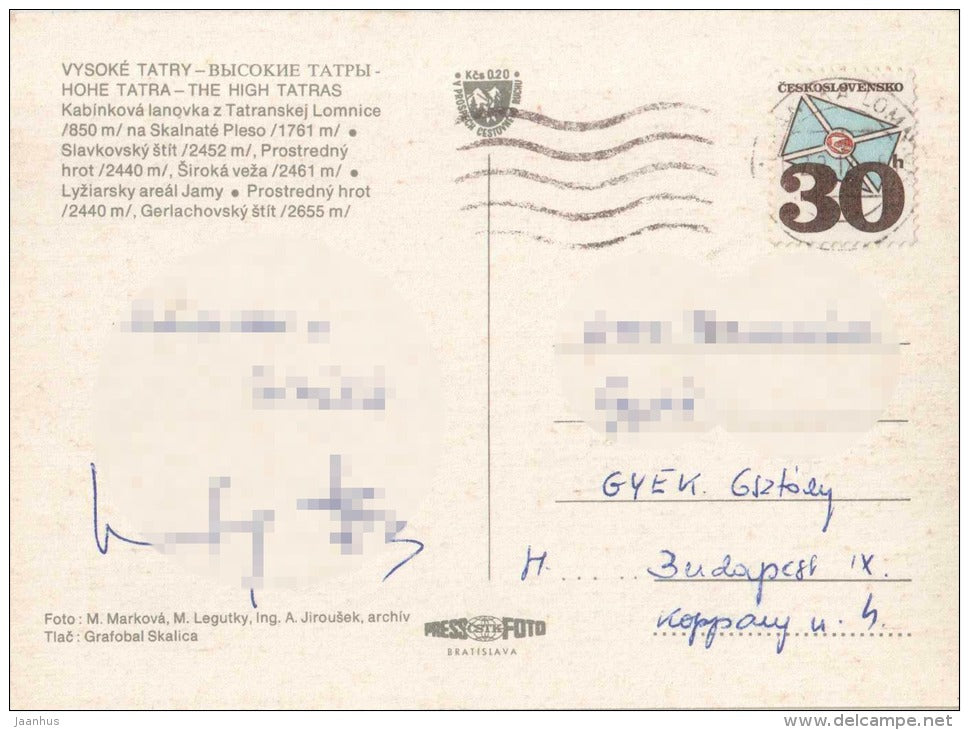 VYSOKÉ TATRY – ВЫСОКИЕ ТАТРЫ -
HOHE TATRA – THE HIGH TATRAS
Kabínková lanovka z Tatranskej Lomnice
/850 m/ na Skalnaté Pleso /1761 m/ ●
Slavkovský štít /2452 m/, Prostredný
hrot /2440 m/, Široká veža /2461 m/ ●
Lyžiarsky areál Jamy ● Prostredný hrot
/2440 m/, Gerlachovský štít /2655 m/
Kčs 0.20
V PROSPECH CESTOVN RUCHU
ČESKOSLOVENSKO
30 h
GYEK. Gsztály
H. Budapest IX.
Koppány u.
Foto : M. Marková, M. Legutky, Ing. A. Jiroušek, archív
Tlač : Grafobal Skalica
PRESS ČSTK FOTO
BRATISLAVA
Jaanhus
www.delcampe.net